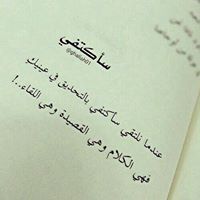 سأكتفي
@ghaliah01
عندما نلتقي سأكتفي بالتحديق في عينيك
فهي الكلام وهي القصيدة وهي اللقاء..!